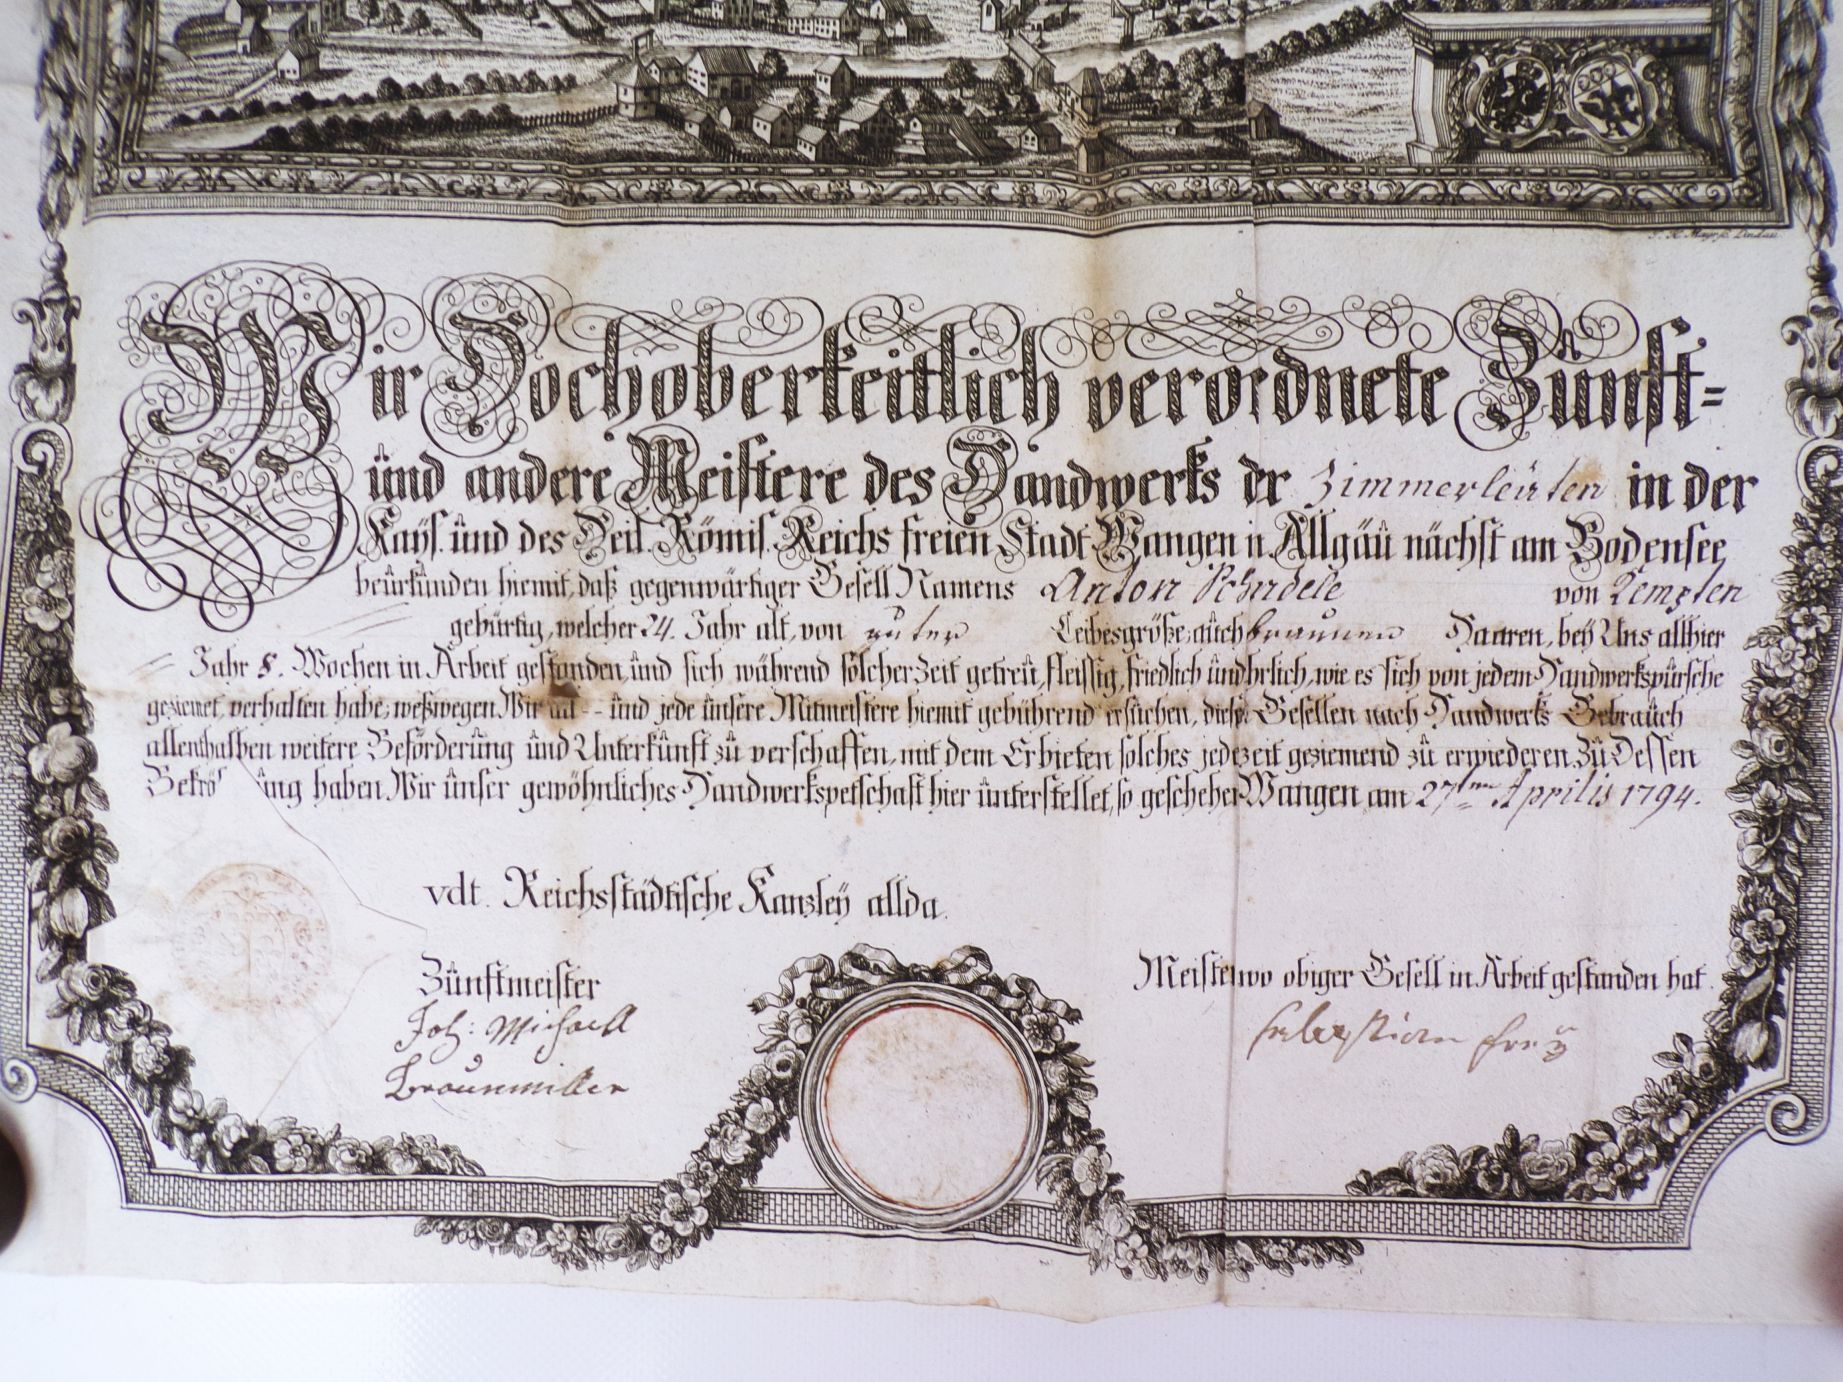 J. H. Mayr sc. Lindau.
Wir Hochoberkeitlich verordnete Zunft=
und andere Meistere des Handwerks der Zimmerleuten in der
Kays. und des Heil. Römis. Reichs freien Stadt Wangen in Allgäu nächst am Bodensee
beurkunden hiemit, daß gegenwärtiger Gesell Namens Anton Schidele von Kempten
gebürtig, welcher 24. Jahr alt, von guter Leibesgröße, auch braunen Haaren, bey Uns allhier
Jahr 8. Wochen in Arbeit gestanden, und sich während solcher Zeit getreu, fleissig, friedlich und ehrlich, wie es sich von jedem Handwerkspursche
geziemet, verhalten habe; weßwegen Wir all - und jede unsere Mitmeistere hiemit gebührend ersuchen, diesen Gesellen nach Handwerks Gebrauch
allenthalben weitere Beförderung und Unterkunft zu verschaffen, mit dem Erbieten solches jederzeit geziemend zu erwiederen. Zu Dessen
Bekrö ung haben Wir unser gewöhnliches Handwerkspetschaft hier unterstellet, so geschehen Wangen am 27ten Aprilis 1794.
vdt. Reichsstädtische Kanzley allda.
Zunftmeister
Joh: Michaell
Braunmiller
Meister wo obiger Gesell in Arbeit gestanden hat.
Sebastian Frey